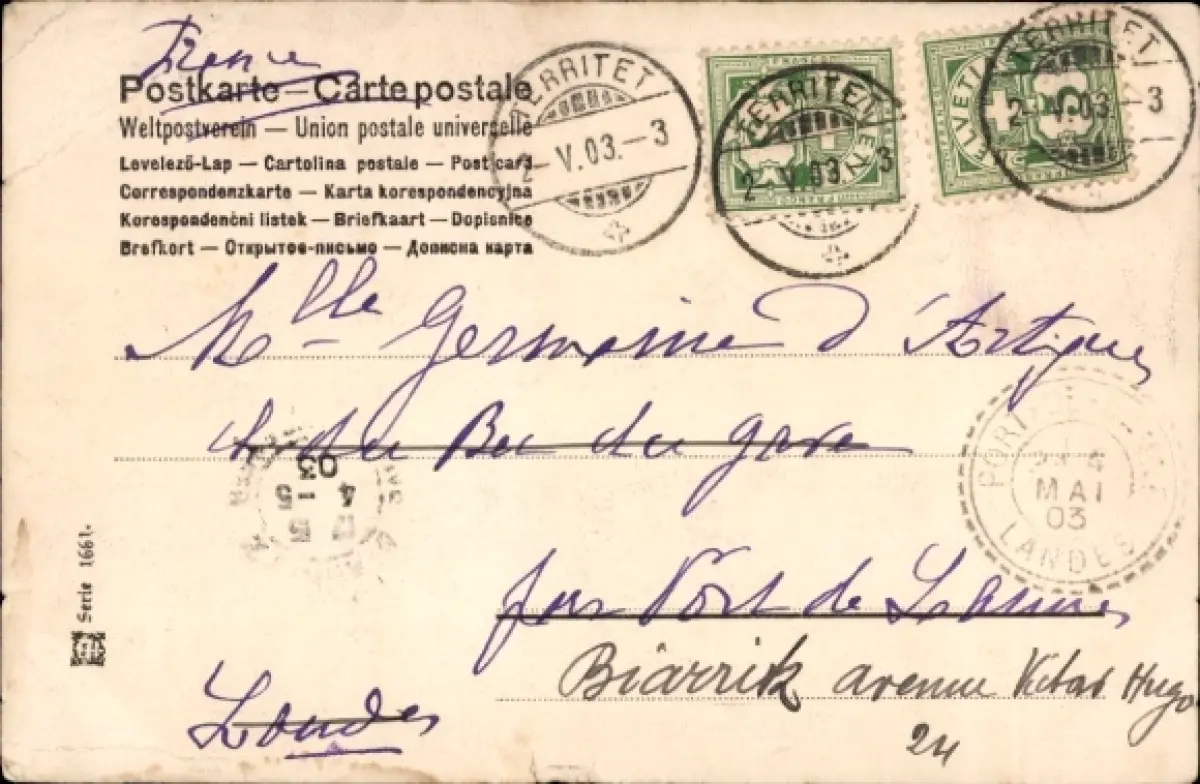 France
Postkarte — Carte postale
Weltpostverein — Union postale universelle
Levelező-Lap — Cartolina postale — Post card
Correspondenzkarte — Karta korespondencyjna
Korespondenční listek — Briefkaart — Dopisnice
Brefkort — Открытое-письмо — Дописна карта
TERRITET
2. V. 03. — 3
TERRITET
2. V. 03 3
TERRITET
2. V. 03. — 3
HELVETIA
Mlle Germaine d'Artigues
Bec du gave
03
4 - 5
PORT
4
MAI
03
LANDES
par Port de Lannes
Biarritz avenue Victor Hugo
24
Landes
Serie 1661.